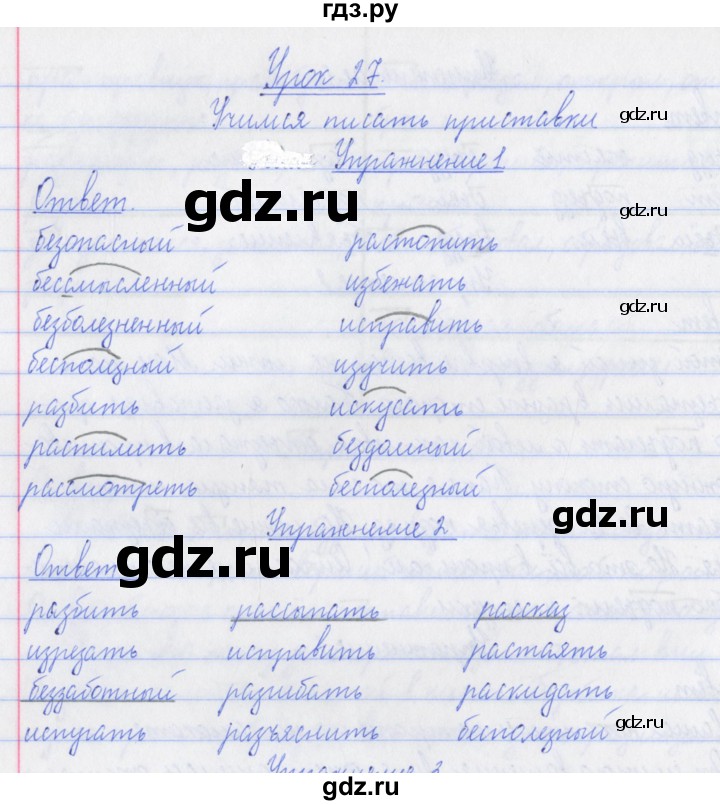 гдз.ру
Урок 27.
Учимся писать приставки
gdz.ru
Упражнение 1
Ответ.
gdz.ru
gdz.ru
безопасный растопить
бессмысленный избежать
gdz.ru
безболезненный исправить
бесполезный изучить
разбить искусать
распилить бездомный
рассмотреть бесполезный
gdz.ru
Упражнение 2
gdz.ru
Ответ
разбить рассыпать рассказ
изрезать исправить растаять
беззаботный разгибать раскидать
gdz.ru
испугать разъяснить бесполезный
Упражнение 3
gdz.ru